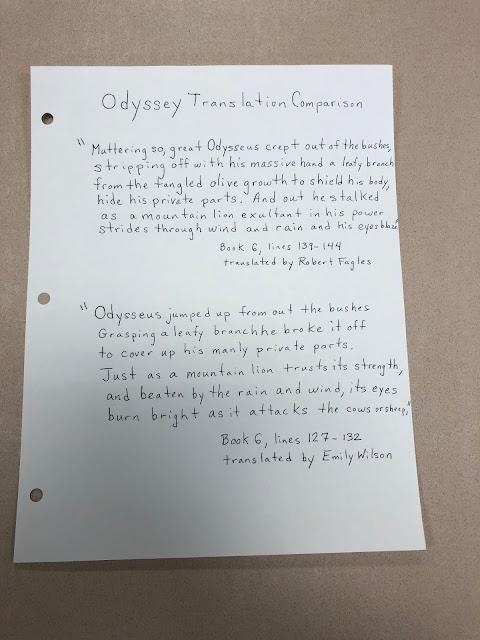 Odyssey Translation Comparison
"Muttering so, great Odysseus crept out of the bushes,
stripping off with his massive hand a leafy branch
from the tangled olive growth to shield his body,
hide his private parts. And out he stalked
as a mountain lion exultant in his power
strides through wind and rain and his eyes blaze"
Book 6, lines 139-144
translated by Robert Fagles
"Odysseus jumped up from out the bushes
Grasping a leafy branch he broke it off
to cover up his manly private parts.
Just as a mountain lion trusts its strength,
and beaten by the rain and wind, its eyes
burn bright as it attacks the cows or sheep,"
Book 6, lines 127-132
translated by Emily Wilson